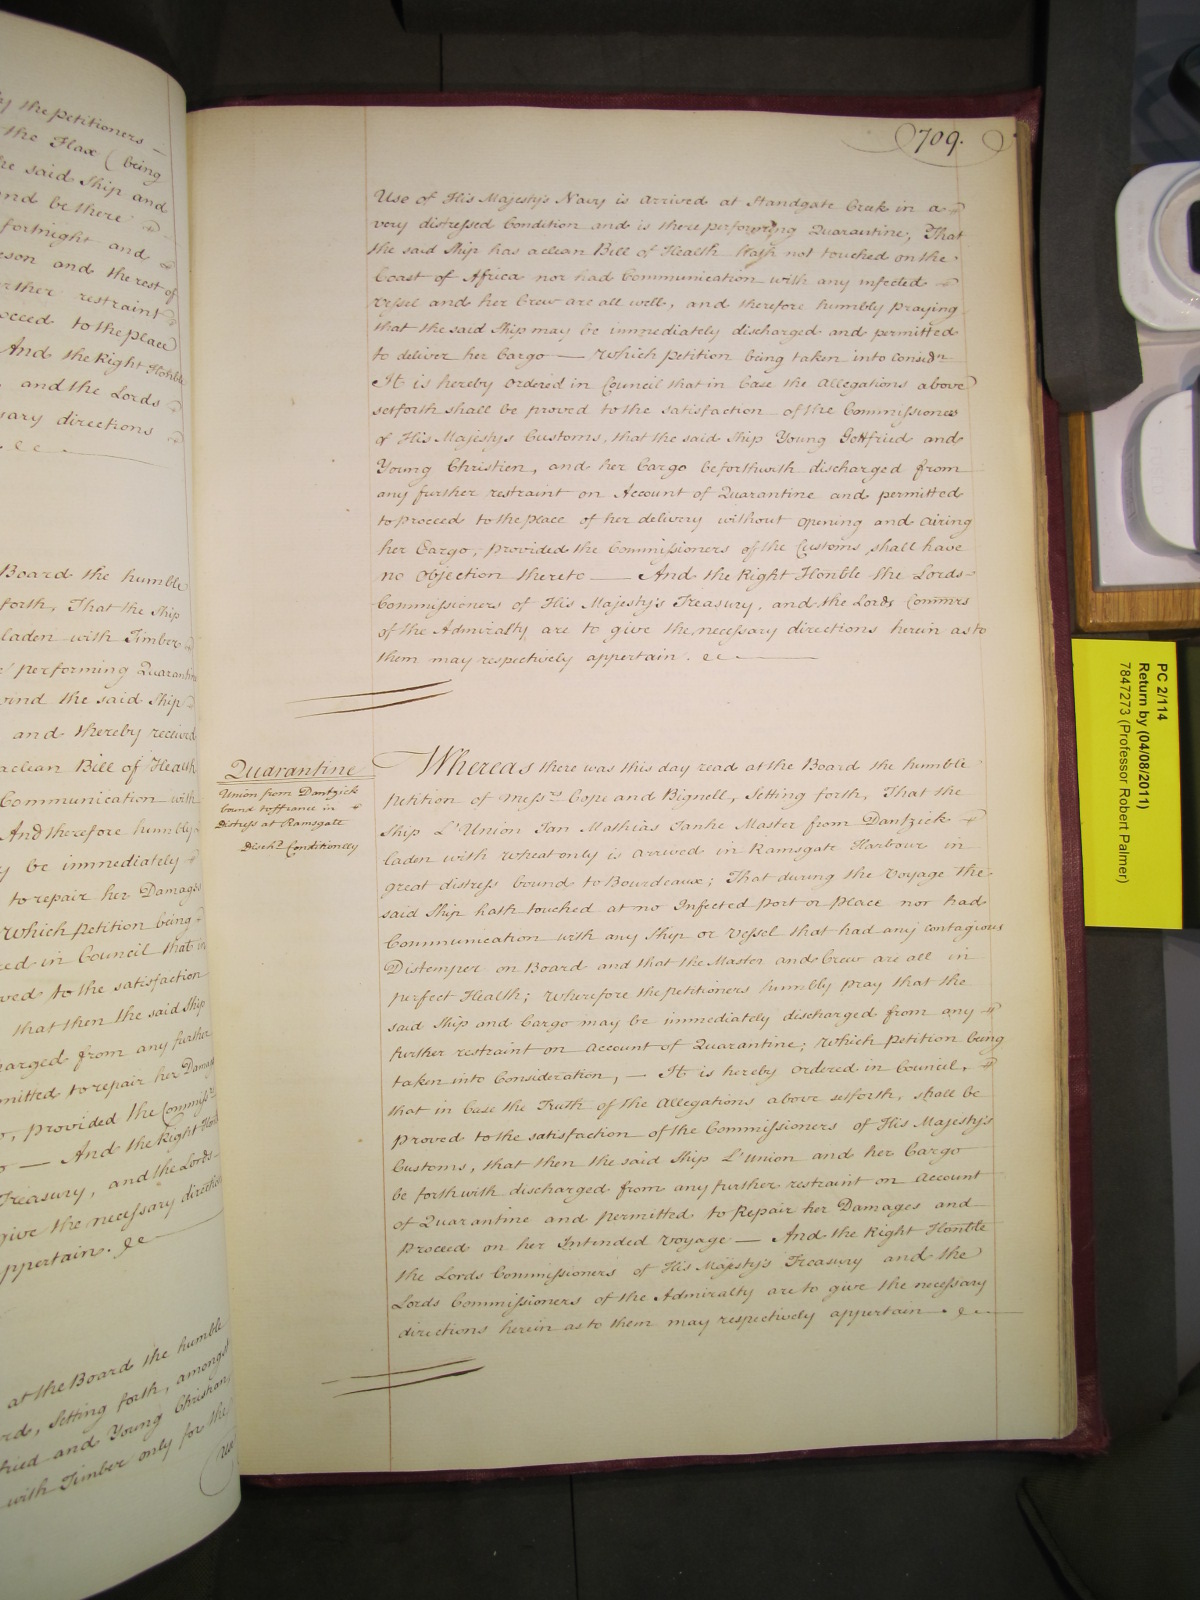 by the Petitioners —
the Flax (being
he said Ship and
and be there
fortnight and
son and the rest of
rther restraint
oceed to the place
And the Right Honble
, and the Lords
sary directions
Board the humble
forth, That the Ship
laden with Timber
performing Quarantine
wind the said Ship
and thereby received
a clean Bill of Health
Communication with
And therefore humbly
y be immediately
to repair her Damages
Which Petition being
red in Council that in
ved to the satisfaction
that then the said Ship
harged from any further
mitted to repair her Damages
, provided the Commissrs
— And the Right Honble
Treasury, and the Lords
give the necessary directions
ppertain. &c
at the Board the humble
rd, Setting forth, amongst
fried and Young Christian,
with Timber only for the
Use
709.
Use of His Majesty's Navy is arrived at Standgate Creek in a
very distressed Condition and is there performing Quarantine, That
the said Ship has a clean Bill of Health Hath not touched on the
Coast of Africa nor had Communication with any infected
Vessel and her Crew are all well, and therefore humbly Praying
that the said Ship may be immediately discharged and permitted
to deliver her Cargo — Which Petition being taken into Considn
It is hereby Ordered in Council that in Case the Allegations above
setforth shall be proved to the satisfaction of the Commissioners
of His Majestys Customs, that the said Ship Young Gottfried and
Young Christien, and her Cargo be forthwith discharged from
any further restraint on Account of Quarantine and permitted
to proceed to the Place of her delivery without opening and airing
her Cargo, provided the Commissioners of the Customs shall have
no Objection thereto — And the Right Honble the Lords
Commissioners of His Majesty's Treasury, and the Lords Commrs
of the Admiralty are to give the necessary directions herein as to
them may respectively appertain. &c
Quarantine
Union from Dantzick
bound to ffrance in
Distress at Ramsgate
Dischd Conditionelly
Whereas there was this day read at the Board the humble
Petition of Messrs Cope and Bignell, Setting forth, That the
Ship L'Union Jan Mathias Janke Master from Dantzick
laden with Wheat only is arrived in Ramsgate Harbour in
great distress bound to Bourdeaux; That during the Voyage the
said Ship hath touched at no Infected Port or Place nor had
Communication with any Ship or Vessel that had any contagious
Distemper on Board and that the Master and Crew are all in
perfect Health; Wherefore the petitioners humbly pray that the
said Ship and Cargo may be immediately discharged from any
further restraint on Account of Quarantine; Which Petition being
taken into Consideration, — It is hereby Ordered in Council,
that in Case the Truth of the Allegations above setforth, shall be
proved to the satisfaction of the Commissioners of His Majesty's
Customs, that then the said Ship L'Union and her Cargo
be forthwith discharged from any further restraint on Account
of Quarantine and permitted to Repair her Damages and
Proceed on her Intended Voyage — And the Right Honble
the Lords Commissioners of His Majesty's Treasury and the
Lords Commissioners of the Admiralty are to give the necessary
directions herein as to them may respectively appertain. &c.
PC 2/114
Return by (04/08/2011)
7847273 (Professor Robert Palmer)